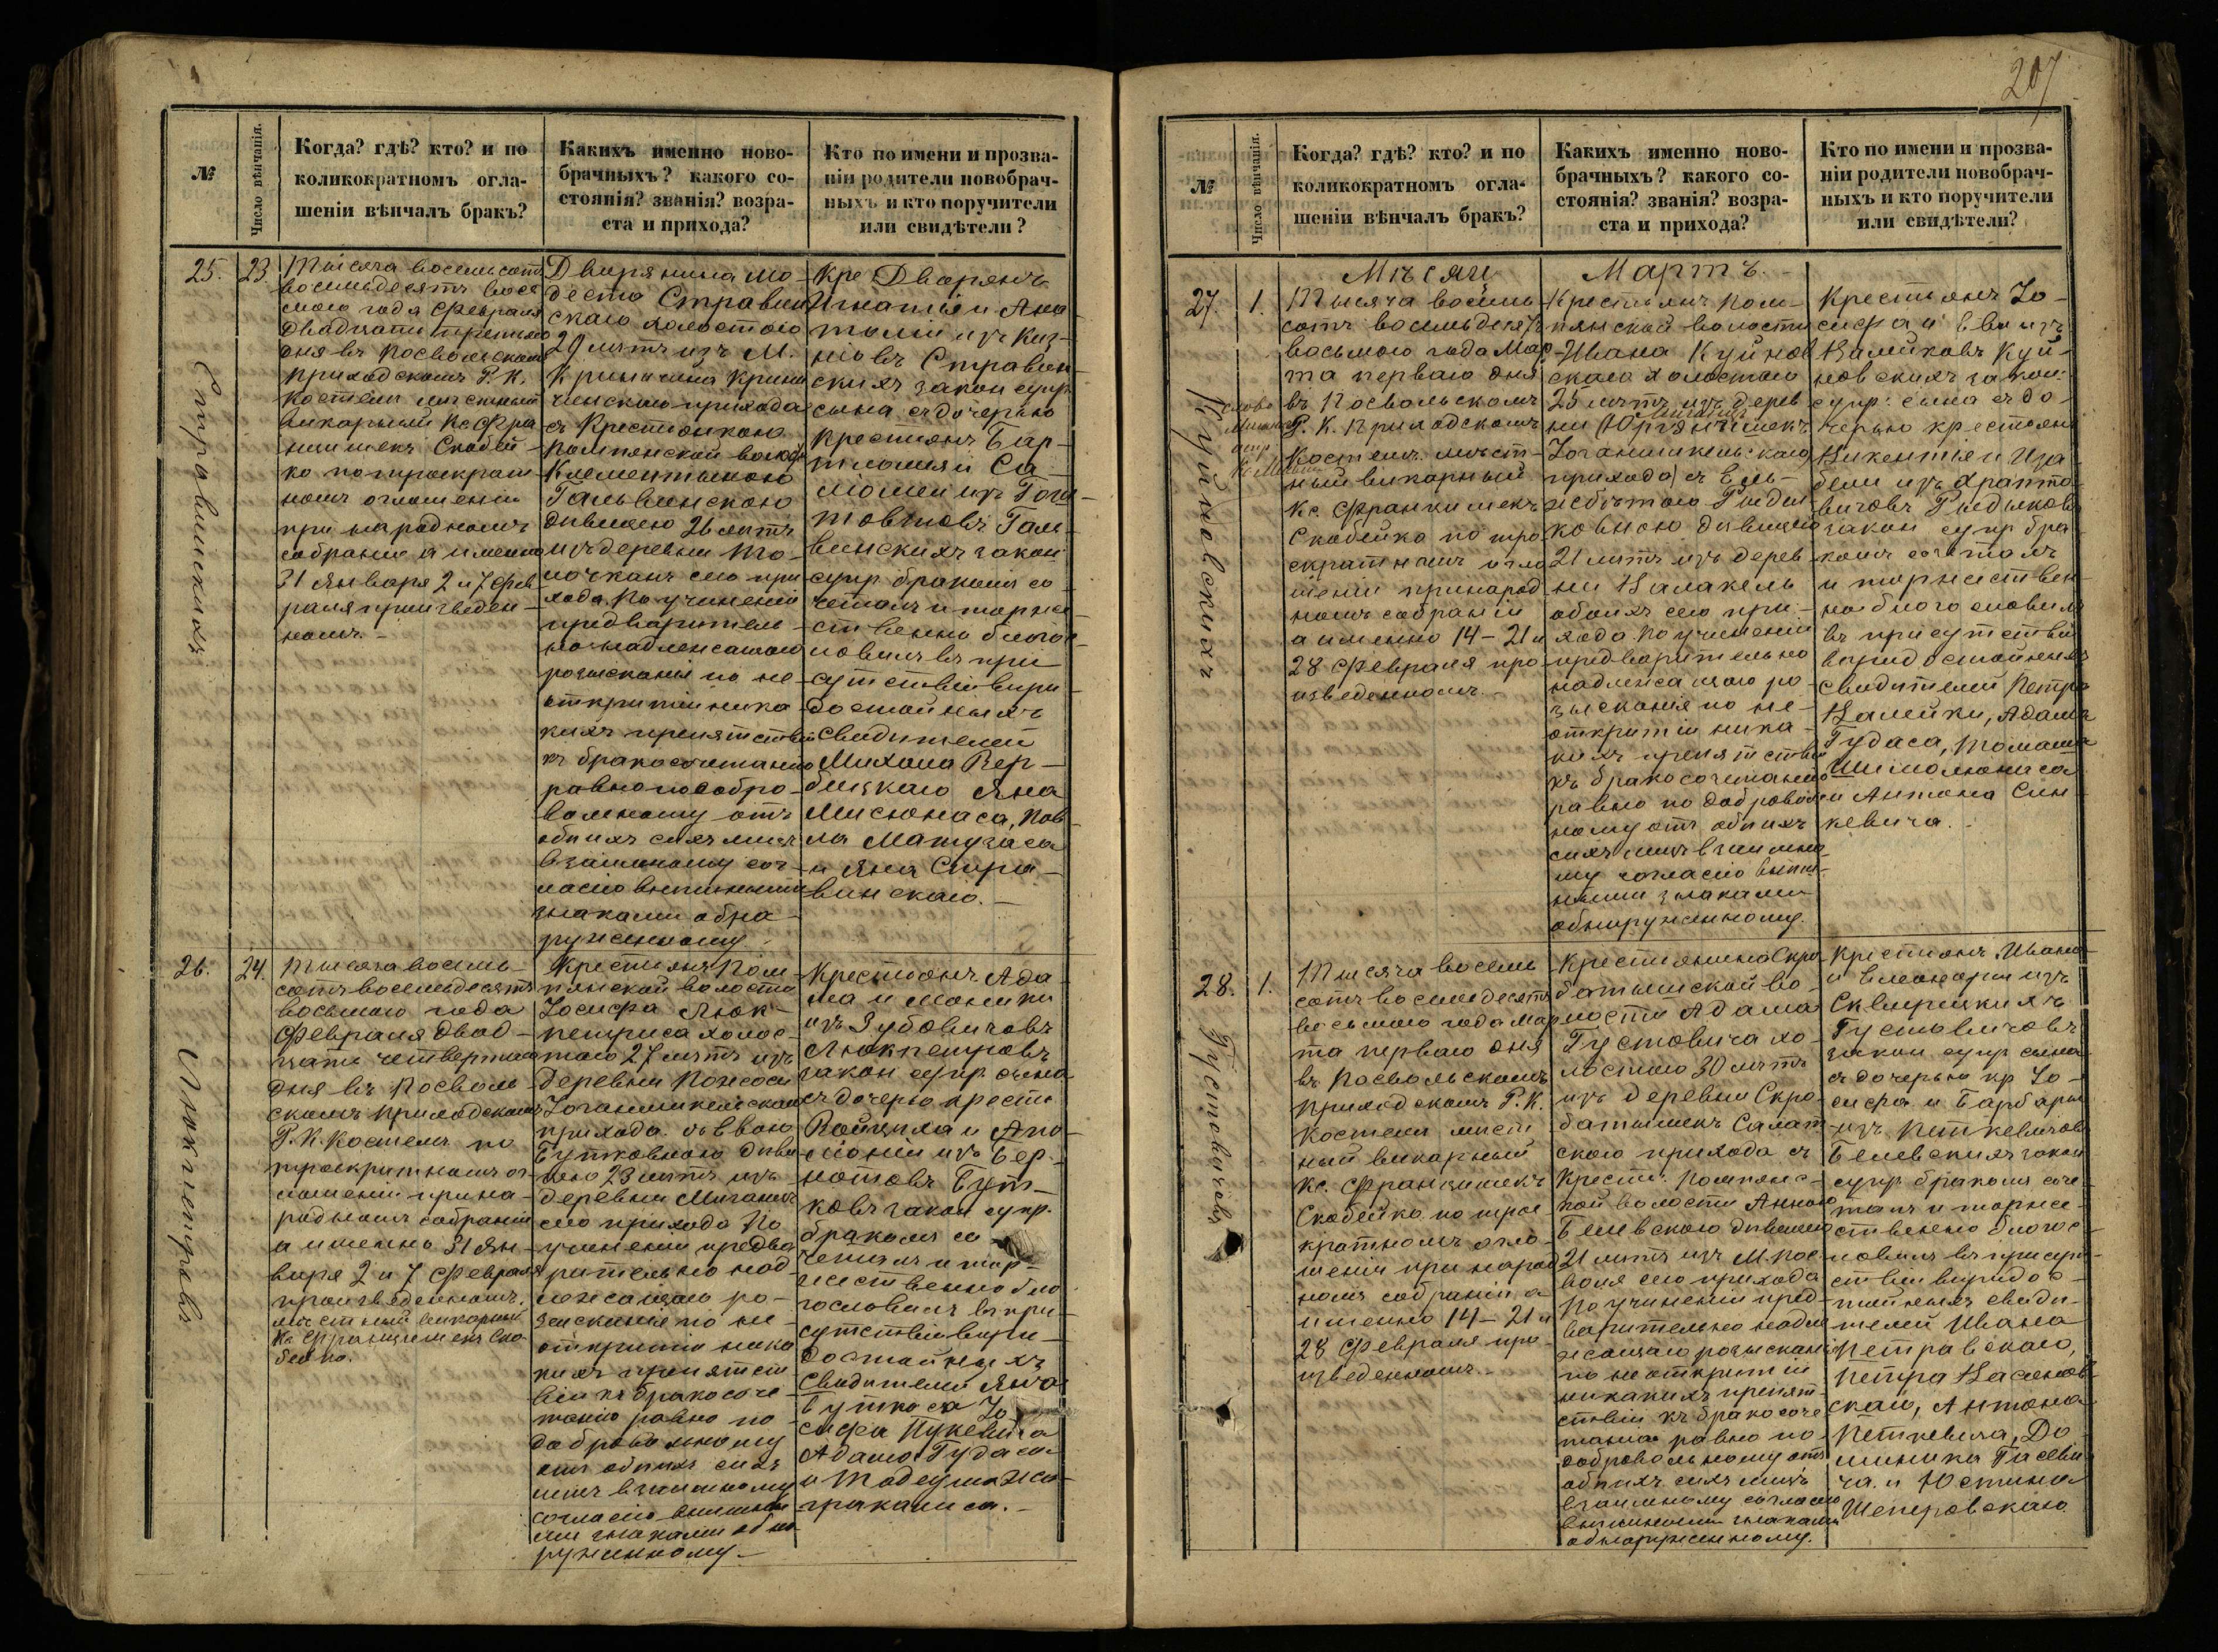 №
Число вѣнчанія.
Когда? гдѣ? кто? и по
коликократномъ огла-
шеніи вѣнчалъ бракъ?
Какихъ именно ново-
брачныхъ? какого со-
стоянія? званія? возра-
ста и прихода?
Кто по имени и прозва-
ніи родители новобрач-
ныхъ и кто поручители
или свидѣтели?
25.
23.
Тысяча восемьсотъ
восемьдесятъ вось
мого года Февраля
двадцать третьяго
дня въ Посвольскомъ
приходскомъ Р. К.
Костелѣ мѣстный
викарный Кс Фра
нцишекъ Скобей-
ко по троекрат
номъ оглашеніи
при народномъ
собраніи а именно
31 Января 2 и 7 Фев
раля произведен-
номъ.
Дворянина Мо
деста Стравин
скаго холостого
29 лѣтъ изъ М.
Кринчина Крин
чинскаго прихода
съ Крестьянкою
Помпянской волос
Клементиною
Гальвинскою
дѣвицею 26 лѣтъ
изъ деревни
сего при
хода. По учиненіи
предваритель
но надлежащаго
розысканія по не
открытіи ника
кихъ препятствій
къ бракосочетанію
равно по добро-
вольному отъ
обоихъ сихъ лицъ
взаимному сог
ласію внѣшними
знаками обна
руженному.
Дворянъ
Игнатія и Ана
толіи изъ
Стравин
скихъ закон супр
сына съ дочерью
крестьянъ Бар-
тломея и Са-
ломеи изъ
Галь
винскихъ закон
супр. бракомъ со
четалъ и торже
ственно благос
ловилъ въ при
сутствіи вѣро
достойныхъ
свидѣтелей
Яна
Мисюнаса, Пав
ла Матузаса
и Яна Стра
винскаго.
Стравинскихъ
26.
24.
Тысяча восемь
сотъ восемьдесятъ
восьмого года
Февраля двад-
цать четвертаго
дня въ Посволь
скомъ приходскомъ
Р. К. Костелѣ по
троекратномъ ог
лашеніи при на
родномъ собраніи
а именно 31 Ян
варя 2 и 7 Февраля
произведенномъ.
мѣстный викарный
Кс Францишекъ Ско
бейко.
Крестьянъ Пом
пянской волости
Іосифа Люк-
петриса холос-
таго 27 лѣтъ изъ
деревни
Іоганишкельскаго
прихода съ Евою
Бутковною дѣви
цею 23 лѣтъ изъ
деревни
сего прихода По
учиненіи предва
рительно над
лежащаго ро-
зысканія по не
открытіи ника
кихъ препятст
вій къ бракосоче
танію равно по
добровольному
отъ обоихъ сихъ
лицъ взаимному
согласію внѣшни
ми знаками обна
руженному.
Крестьянъ Ада
ма и Моники
изъ Зубовичовъ
Люкпетровъ
закон супр. сына
съ дочерью крестьян
Войцеха и Апо
лоніи изъ Бер-
нотовъ Бут-
ковъ закон супр.
бракомъ со
четалъ и тор-
жественно бла
гословилъ въ при
сутствіи вѣро
достойныхъ
Свидѣтелей Яна
Буткоса Іо
сифа Пукевича
Адама Гудаса
и Тадеуша
Люкпетровъ
207
№
Число вѣнчанія.
Когда? гдѣ? кто? и по
коликократномъ огла-
шеніи вѣнчалъ бракъ?
Какихъ именно ново-
брачныхъ? какого со-
стоянія? званія? возра-
ста и прихода?
Кто по имени и прозва-
ніи родители новобрач-
ныхъ и кто поручители
или свидѣтели?
Мѣсяц
Мартъ.
27.
1.
Тысяча восемь
сотъ восемьдесятъ
восьмого года Мар
та перваго дня
въ Посвольскомъ
Р. К. Приходскомъ
Костелѣ мѣст-
ный викарный
Кс. Францишекъ
Скобейко по тро
екратномъ огла
шеніи при народ
номъ собраніи
а именно 14-21 и
28 Февраля про
изведенномъ.
Крестьянъ Пом-
пянской волости
Ивана Куйнов
скаго холостаго
25 лѣтъ изъ дерев
ни
Іоганишкельскаго
прихода съ Ель-
жбѣтою
ковною дѣвицею
21 лѣтъ изъ дерев
ни
обоихъ сего при-
хода. По учиненіи
предварительно
надлежащаго ро-
зысканія по не-
открытіи ника-
кихъ препятствій
къ бракосочетанію
равно по доброволь
ному отъ обоихъ
сихъ лицъ взаимно
му согласію внѣш
ними знаками
обнаруженному.
Крестьянъ Іо-
сифа и Евы изъ
Валейковъ Куй-
новскихъ закон:
супр: сына съ до-
черью крестьян
Викентія и Иза
бели изъ
закон супр бра
комъ сочеталъ
и торжествен-
но благословилъ
въ присутствіи
вѣродостойныхъ
Свидѣтелей Петра
Валейки, Адама
Гудаса, Томаша
и Антона Син
кевича.
слово
Куйновскихъ
28.
1.
Тысяча восемь
сотъ восемьдесятъ
восьмого года Мар
та перваго дня
въ Посвольскомъ
приходскомъ Р. К.
Костелѣ мѣст
ный викарный
Кс. Францишекъ
Скобейко по трое
кратномъ огла
шеніи при народ
номъ собраніи а
именно 14-21 и
28 Февраля про
изведенномъ.
Крестьянина Скро
батышской во-
лости Адама
Густовича хо-
лостаго 30 лѣтъ
изъ деревни Скро
батышекъ Салат
скаго прихода съ
Крест: Помпянс-
кой волости Анною
Белевскою дѣвицею
21 лѣтъ изъ М. Пос
воля сего прихода
По учиненіи пред-
варительно надле
жащаго розысканія
по не открытіи
никакихъ препят-
ствій къ бракосоче
танію равно по
добровольному отъ
обоихъ сихъ лицъ
взаимному согласію
внѣшними знаками
обнаруженному.
Крестьянъ Ивана
изъ
Густовичовъ
закон супр сына
съ дочерью кр Іо-
сифа и Барбары
изъ Петкевичовъ
Белевскихъ закон
супр. бракомъ соче
талъ и торже-
ственно благос-
ловилъ въ присут
ствіи вѣродос-
тойныхъ свидѣ-
телей Ивана
Петравскаго,
Петра
скаго, Антона
Петкевича, До
миника Гасеви
ча и Юстина
Шепровскаго
Густовичовъ